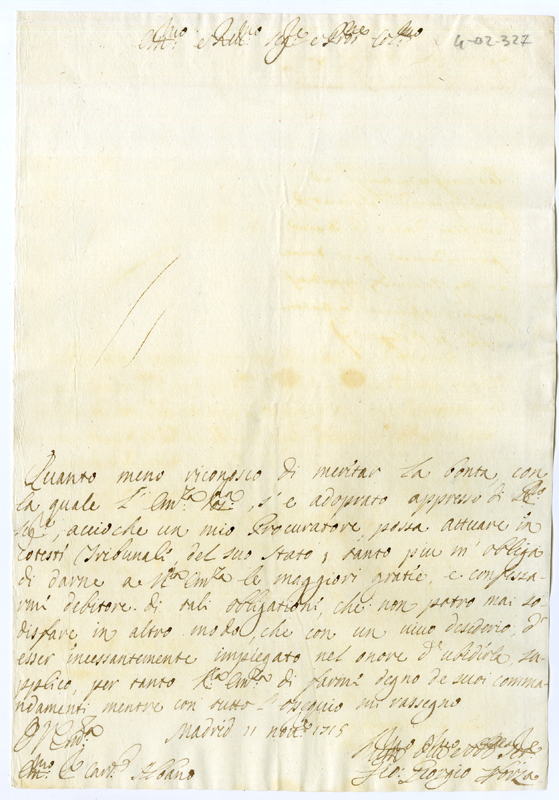 4-02-327
Em.mo e Rev.mo Sig.re e Pron Col.mo
Quanto meno riconosco di meritar la bontà con
la quale l' Em.za V.ra, s' è adoprato appresso di
acciòche un mio Procuratore possa attuare in
cotesti Tribunali del suo stato, tanto piu m' obliga
di darne a V.ra Em.za le maggiori gratie, e confessa-
rmi debitore di tali obligationi, che non potrò mai so-
disfare in altro modo, che con un vivo desiderio, d'
esser incessantemente impiegato nel onore d' ubidirla, su-
pplico, per tanto V.ra Em.za di farmi degno de suoi coma-
ndamenti mentre con tutto l' ossequio mi rassegno
Madrid 11 nov.e 1715
Em.mo Card. Albano
Gio: Giorgio